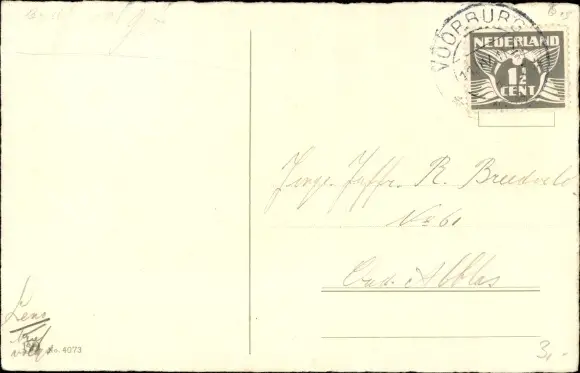 VOORBURG
NEDERLAND
1½
CENT
Jonge. Juffr. R. Breedvelo.
No 61
Oud. Alblas
No. 4073
3,-